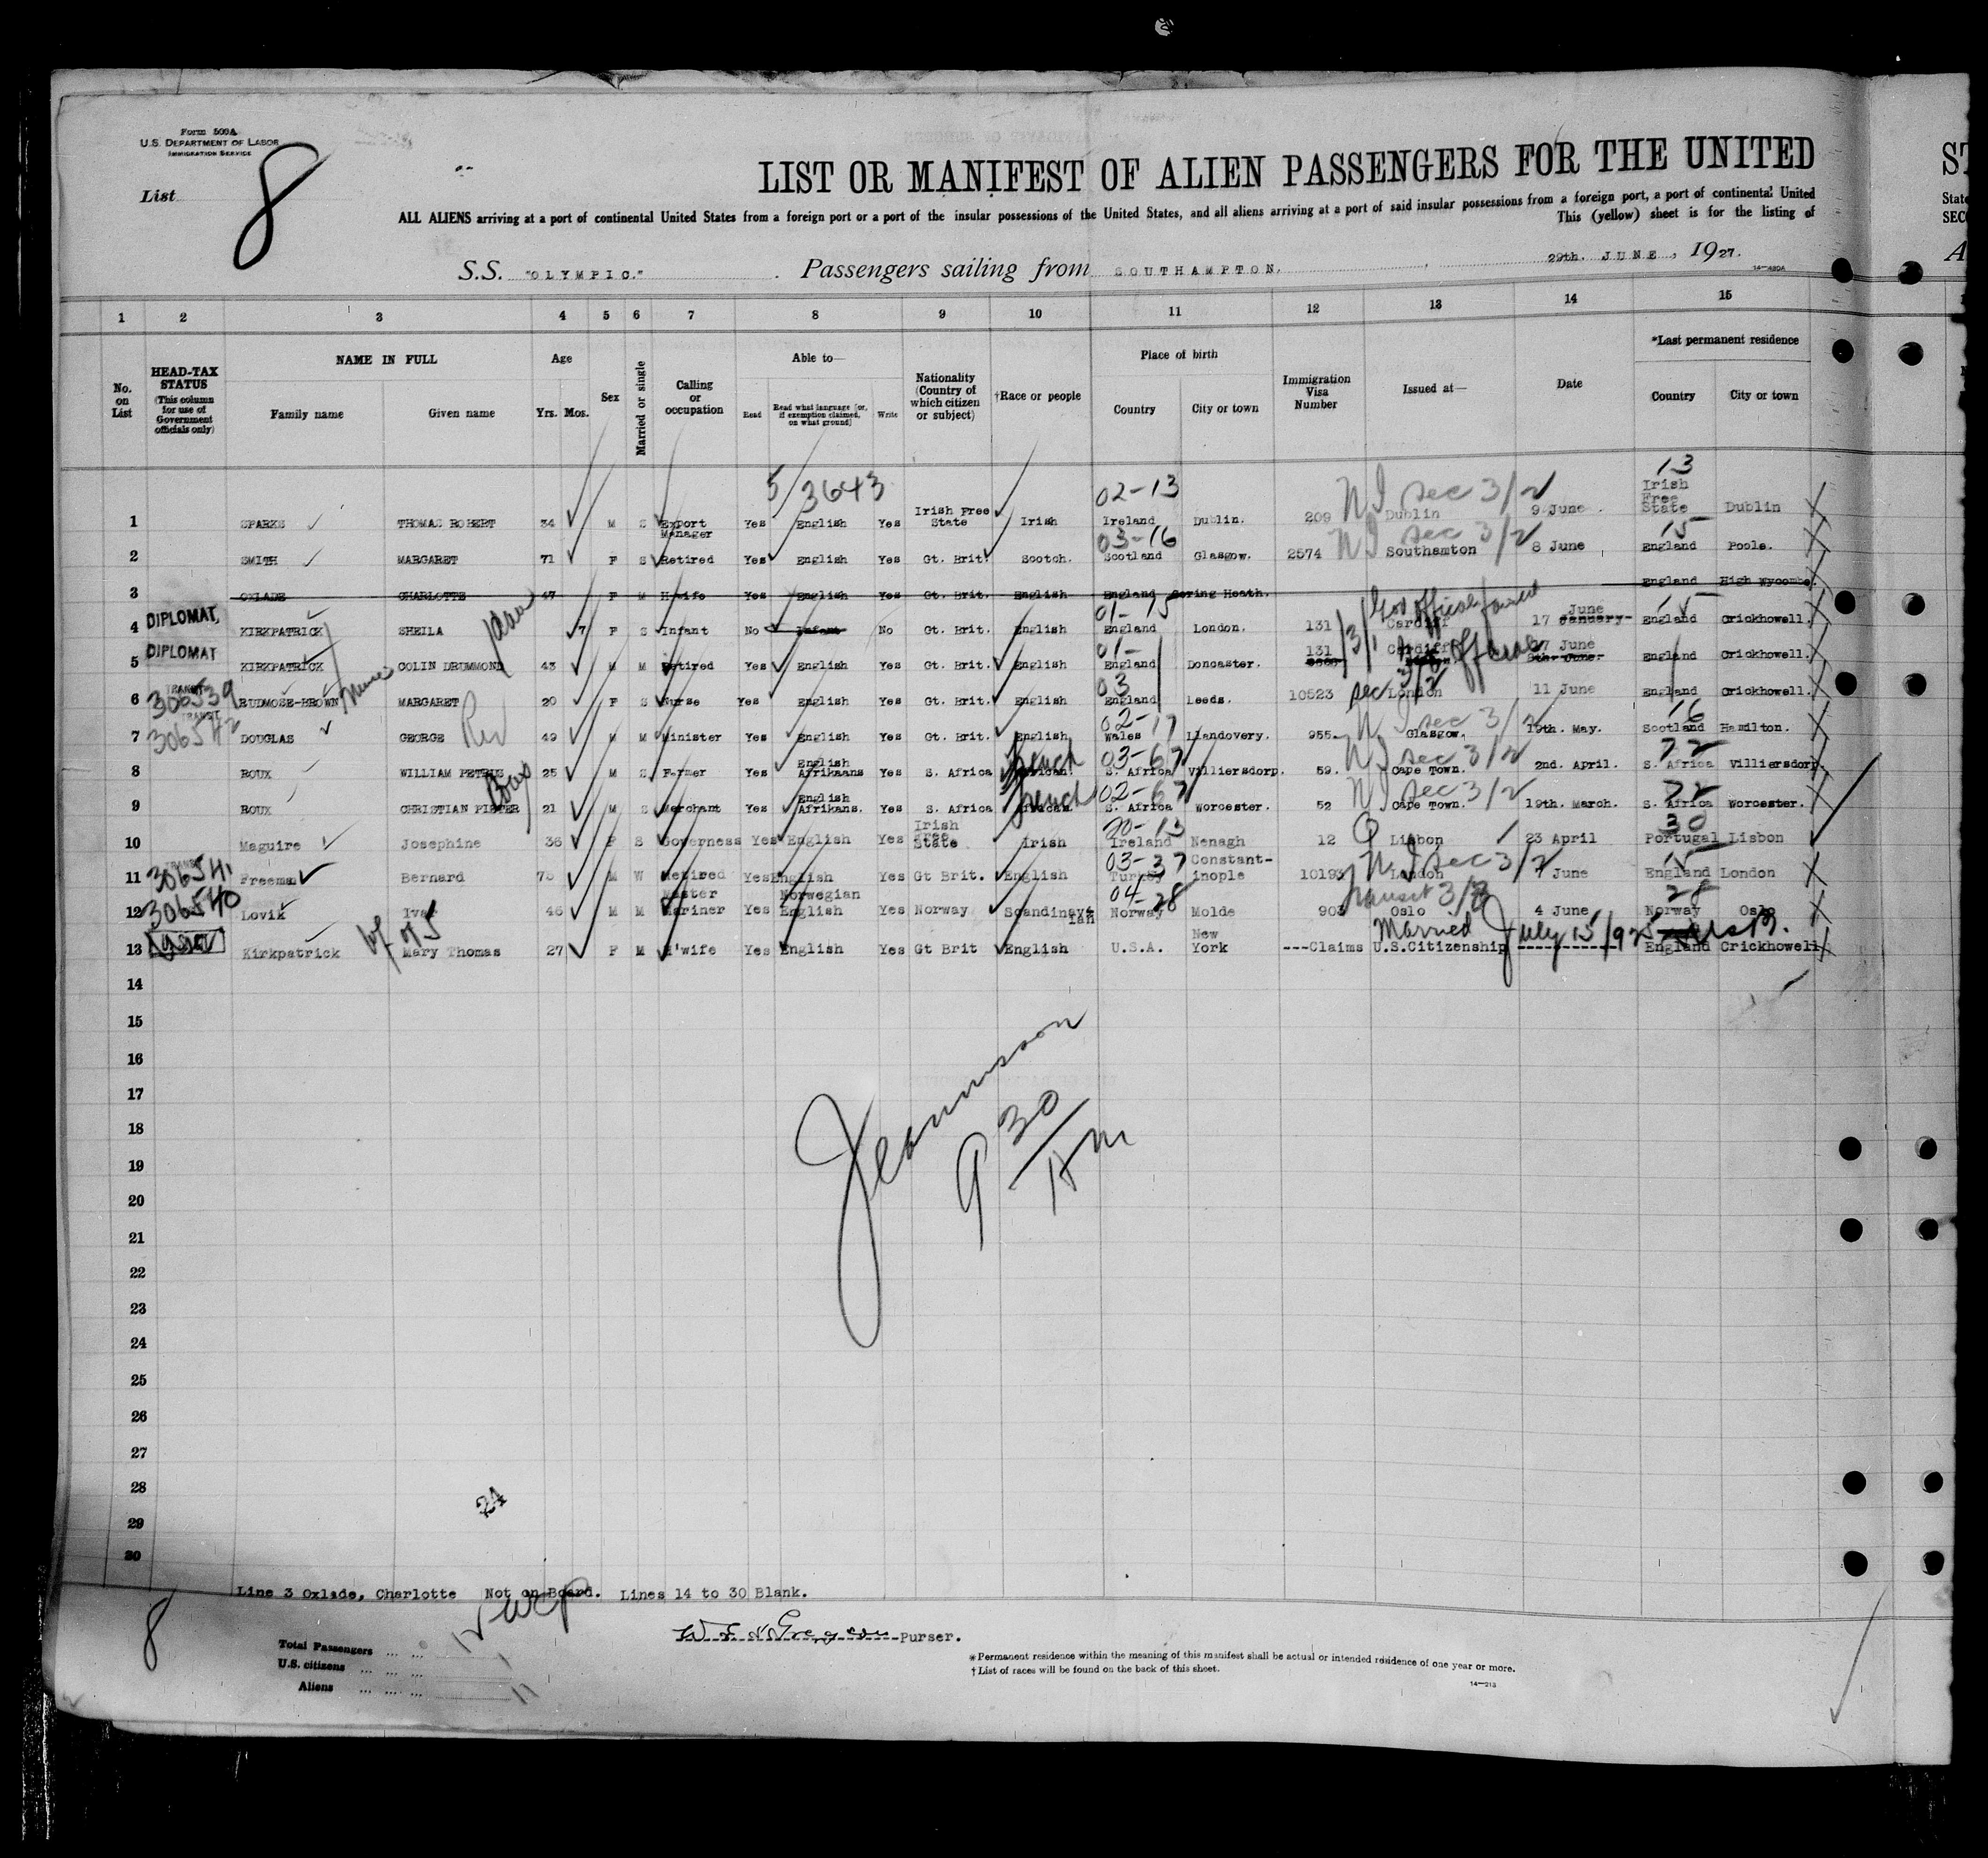 Form 500A
U.S. DEPARTMENT OF LABOR
IMMIGRATION SERVICE
List 8
LIST OR MANIFEST OF ALIEN PASSENGERS FOR THE UNITED
ST
ALL ALIENS arriving at a port of continental United States from a foreign port or a port of the insular possessions of the United States, and all aliens arriving at a port of said insular possessions from a foreign port, a port of continental United
State
This (yellow) sheet is for the listing of
SEC
S.S. "OLYMPIC." Passengers sailing from SOUTHAMPTON, 29th. JUNE, 1927.
A
14-480A
1 2 3 4 5 6 7 8 9 10 11 12 13 14 15
No. on List
HEAD-TAX STATUS (This column for use of Government officials only)
NAME IN FULL
Family name Given name
Age
Yrs. Mos.
Sex
Married or single
Calling or occupation
Able to—
Read Read what language [or, if exemption claimed, on what ground] Write
Nationality (Country of which citizen or subject)
†Race or people
Place of birth
Country City or town
Immigration Visa Number
Issued at—
Date
*Last permanent residence
Country City or town
5/3643 02-13 N I sec 3/2 13
1 SPARKS THOMAS ROBERT 34 M S Export Manager Yes English Yes Irish Free State Irish Ireland Dublin. 209 Dublin 9 June Irish Free State Dublin
03-16 N I sec 3/2 15
2 SMITH MARGARET 71 F S Retired Yes English Yes Gt. Brit. Scotch. Scotland Glasgow. 2574 Southamton 8 June England Poole.
3 OXLADE CHARLOTTE 47 F M H'wife Yes English Yes Gt. Brit. English England Goring Heath. England High Wycombe.
DIPLOMAT, 01-15 15
4 KIRKPATRICK SHEILA 7 F S Infant No Infant No Gt. Brit. English England London. 131 Cardiff 17 June January England Crickhowell.
DIPLOMAT 01-
5 KIRKPATRICK COLIN DRUMMOND 43 M M Retired Yes English Yes Gt. Brit. English England Doncaster. 131 Cardiff 17 June 8th. June. England Crickhowell.
306539 TRANSIT 03 sec 3/2
6 RUDMOSE-BROWN Nurse MARGARET 20 F S Nurse Yes English Yes Gt. Brit. English England Leeds. 10523 London 11 June England Crickhowell.
306542 TRANSIT 02-17 N I sec 3/2 16
7 DOUGLAS GEORGE Rev 49 M M Minister Yes English Yes Gt. Brit. English Wales Llandovery. 955 Glasgow. 19th. May. Scotland Hamilton.
French 03-67 N I sec 3/2 72
8 ROUX WILLIAM PETRUS 25 M S Farmer Yes English Afrikaans Yes S. Africa African. S. Africa Villiersdorp. 59. Cape Town. 2nd. April. S. Africa Villiersdorp.
French 02-67 N I sec 3/2 72
9 ROUX CHRISTIAN PIETER 21 M S Merchant Yes English Afrikans. Yes S. Africa African. S. Africa Worcester. 52 Cape Town. 19th. March. S. Africa Worcester.
20-13 30
10 Maguire Josephine 36 F S Governess Yes English Yes Irish Free State Irish Ireland Nenagh 12 Lisbon 23 April Portugal Lisbon
306541 TRANSIT 03-37 N I sec 3/2 15
11 Freeman Bernard 75 M W Retired Yes English Yes Gt Brit. English Turkey Constant-inople 10193 London 7 June England London
306540 04-28 Transit 3/3 28
12 Lovik Ivar 46 M M Master Mariner Yes Norwegian English Yes Norway Scandinavian Norway Molde 903 Oslo 4 June Norway Oslo
wf of 5 Married July 15/925
13 Kirkpatrick Mary Thomas 27 F M H'wife Yes English Yes Gt Brit English U.S.A. New York ---Claims U.S.Citizenship ---------- England Crickhowell
14
15
16
17
18
19
20
21
22
23
24
25
26
27
28
29
30
9 30 AM
24
Line 3 Oxlade, Charlotte Not on Board. Lines 14 to 30 Blank.
8
Purser.
Total Passengers ... ... 12
U.S. citizens ... ... ... 1
Aliens ... ... ... 11
*Permanent residence within the meaning of this manifest shall be actual or intended residence of one year or more.
†List of races will be found on the back of this sheet.
14-213